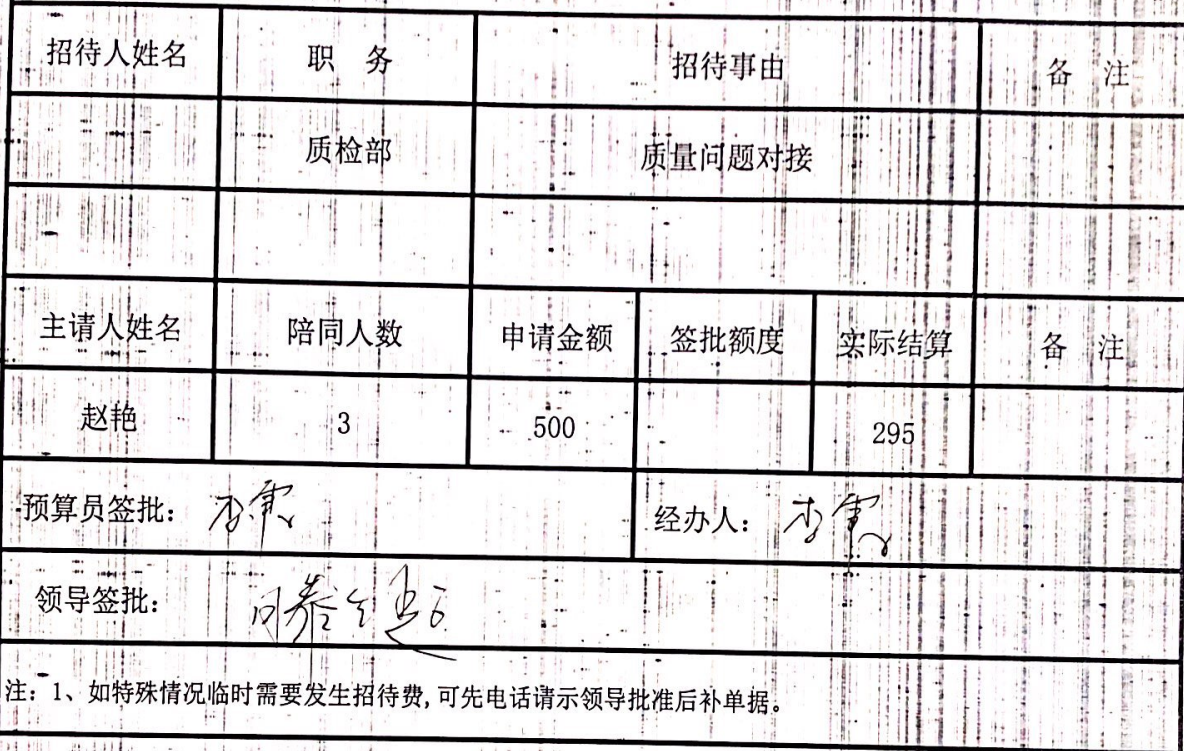 招待人姓名 职 务 招待事由 备 注
质检部 质量问题对接
主请人姓名 陪同人数 申请金额 签批额度 实际结算 备 注
赵艳 3 500 295
预算员签批： 经办人：
领导签批：
注：1、如特殊情况临时需要发生招待费,可先电话请示领导批准后补单据。